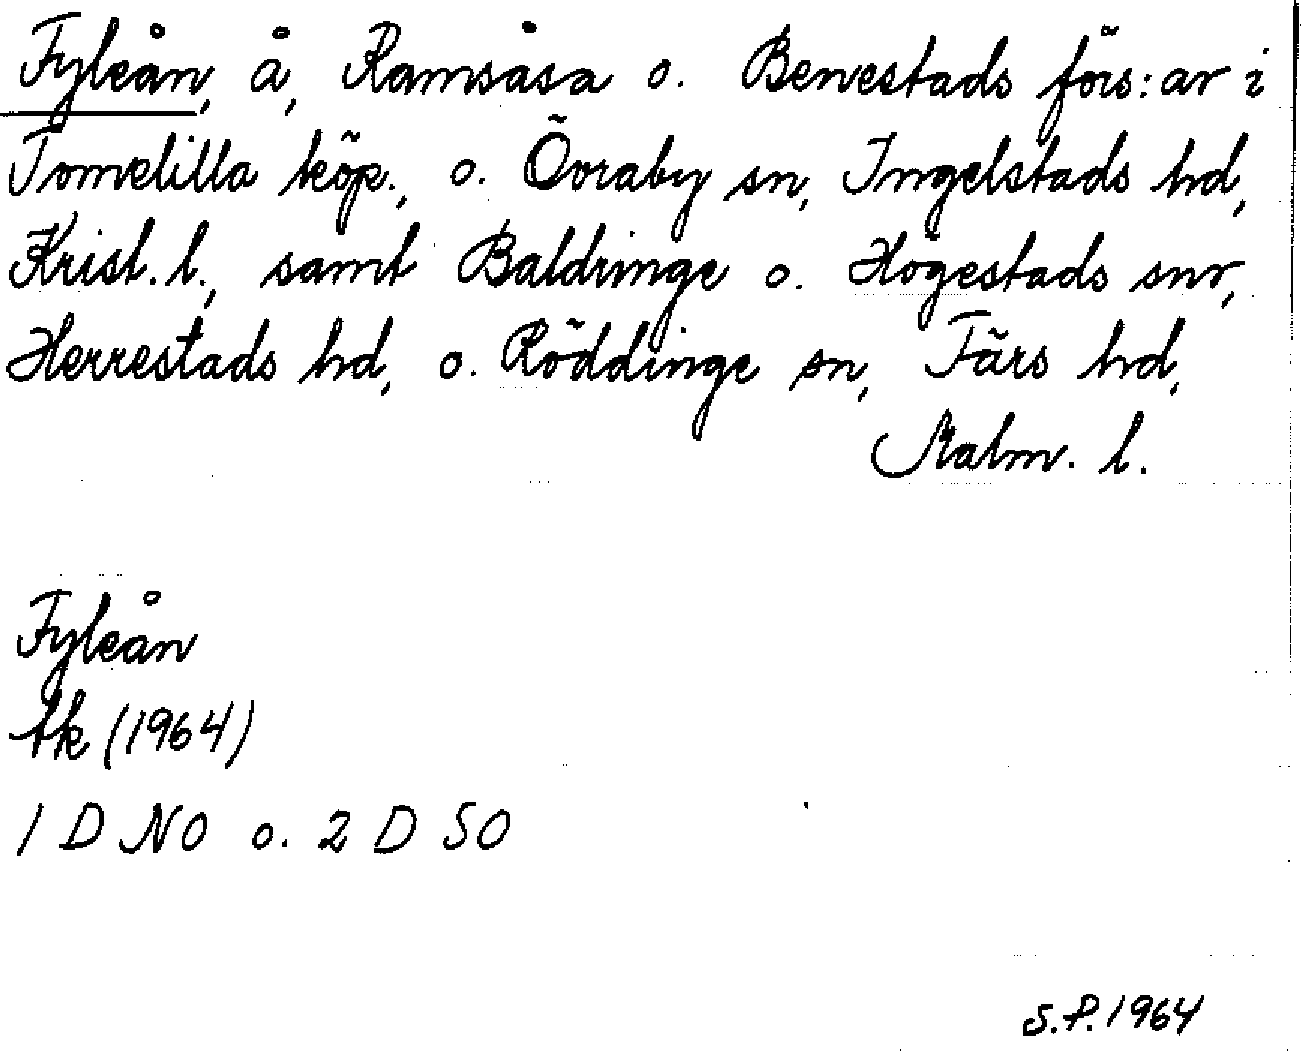 Fyleån, å, Ramsåsa o. Benestads förs:ar i
Tomelilla köp., o. Övraby sn, Ingelstads hd,
Krist. l., samt Baldringe o. Högestads snr,
Herrestads hd, o. Röddinge sn, Färs hd,
Malm. l.
Fyleån
tk (1964)
1 D NO o. 2 D SO
S.P. 1964